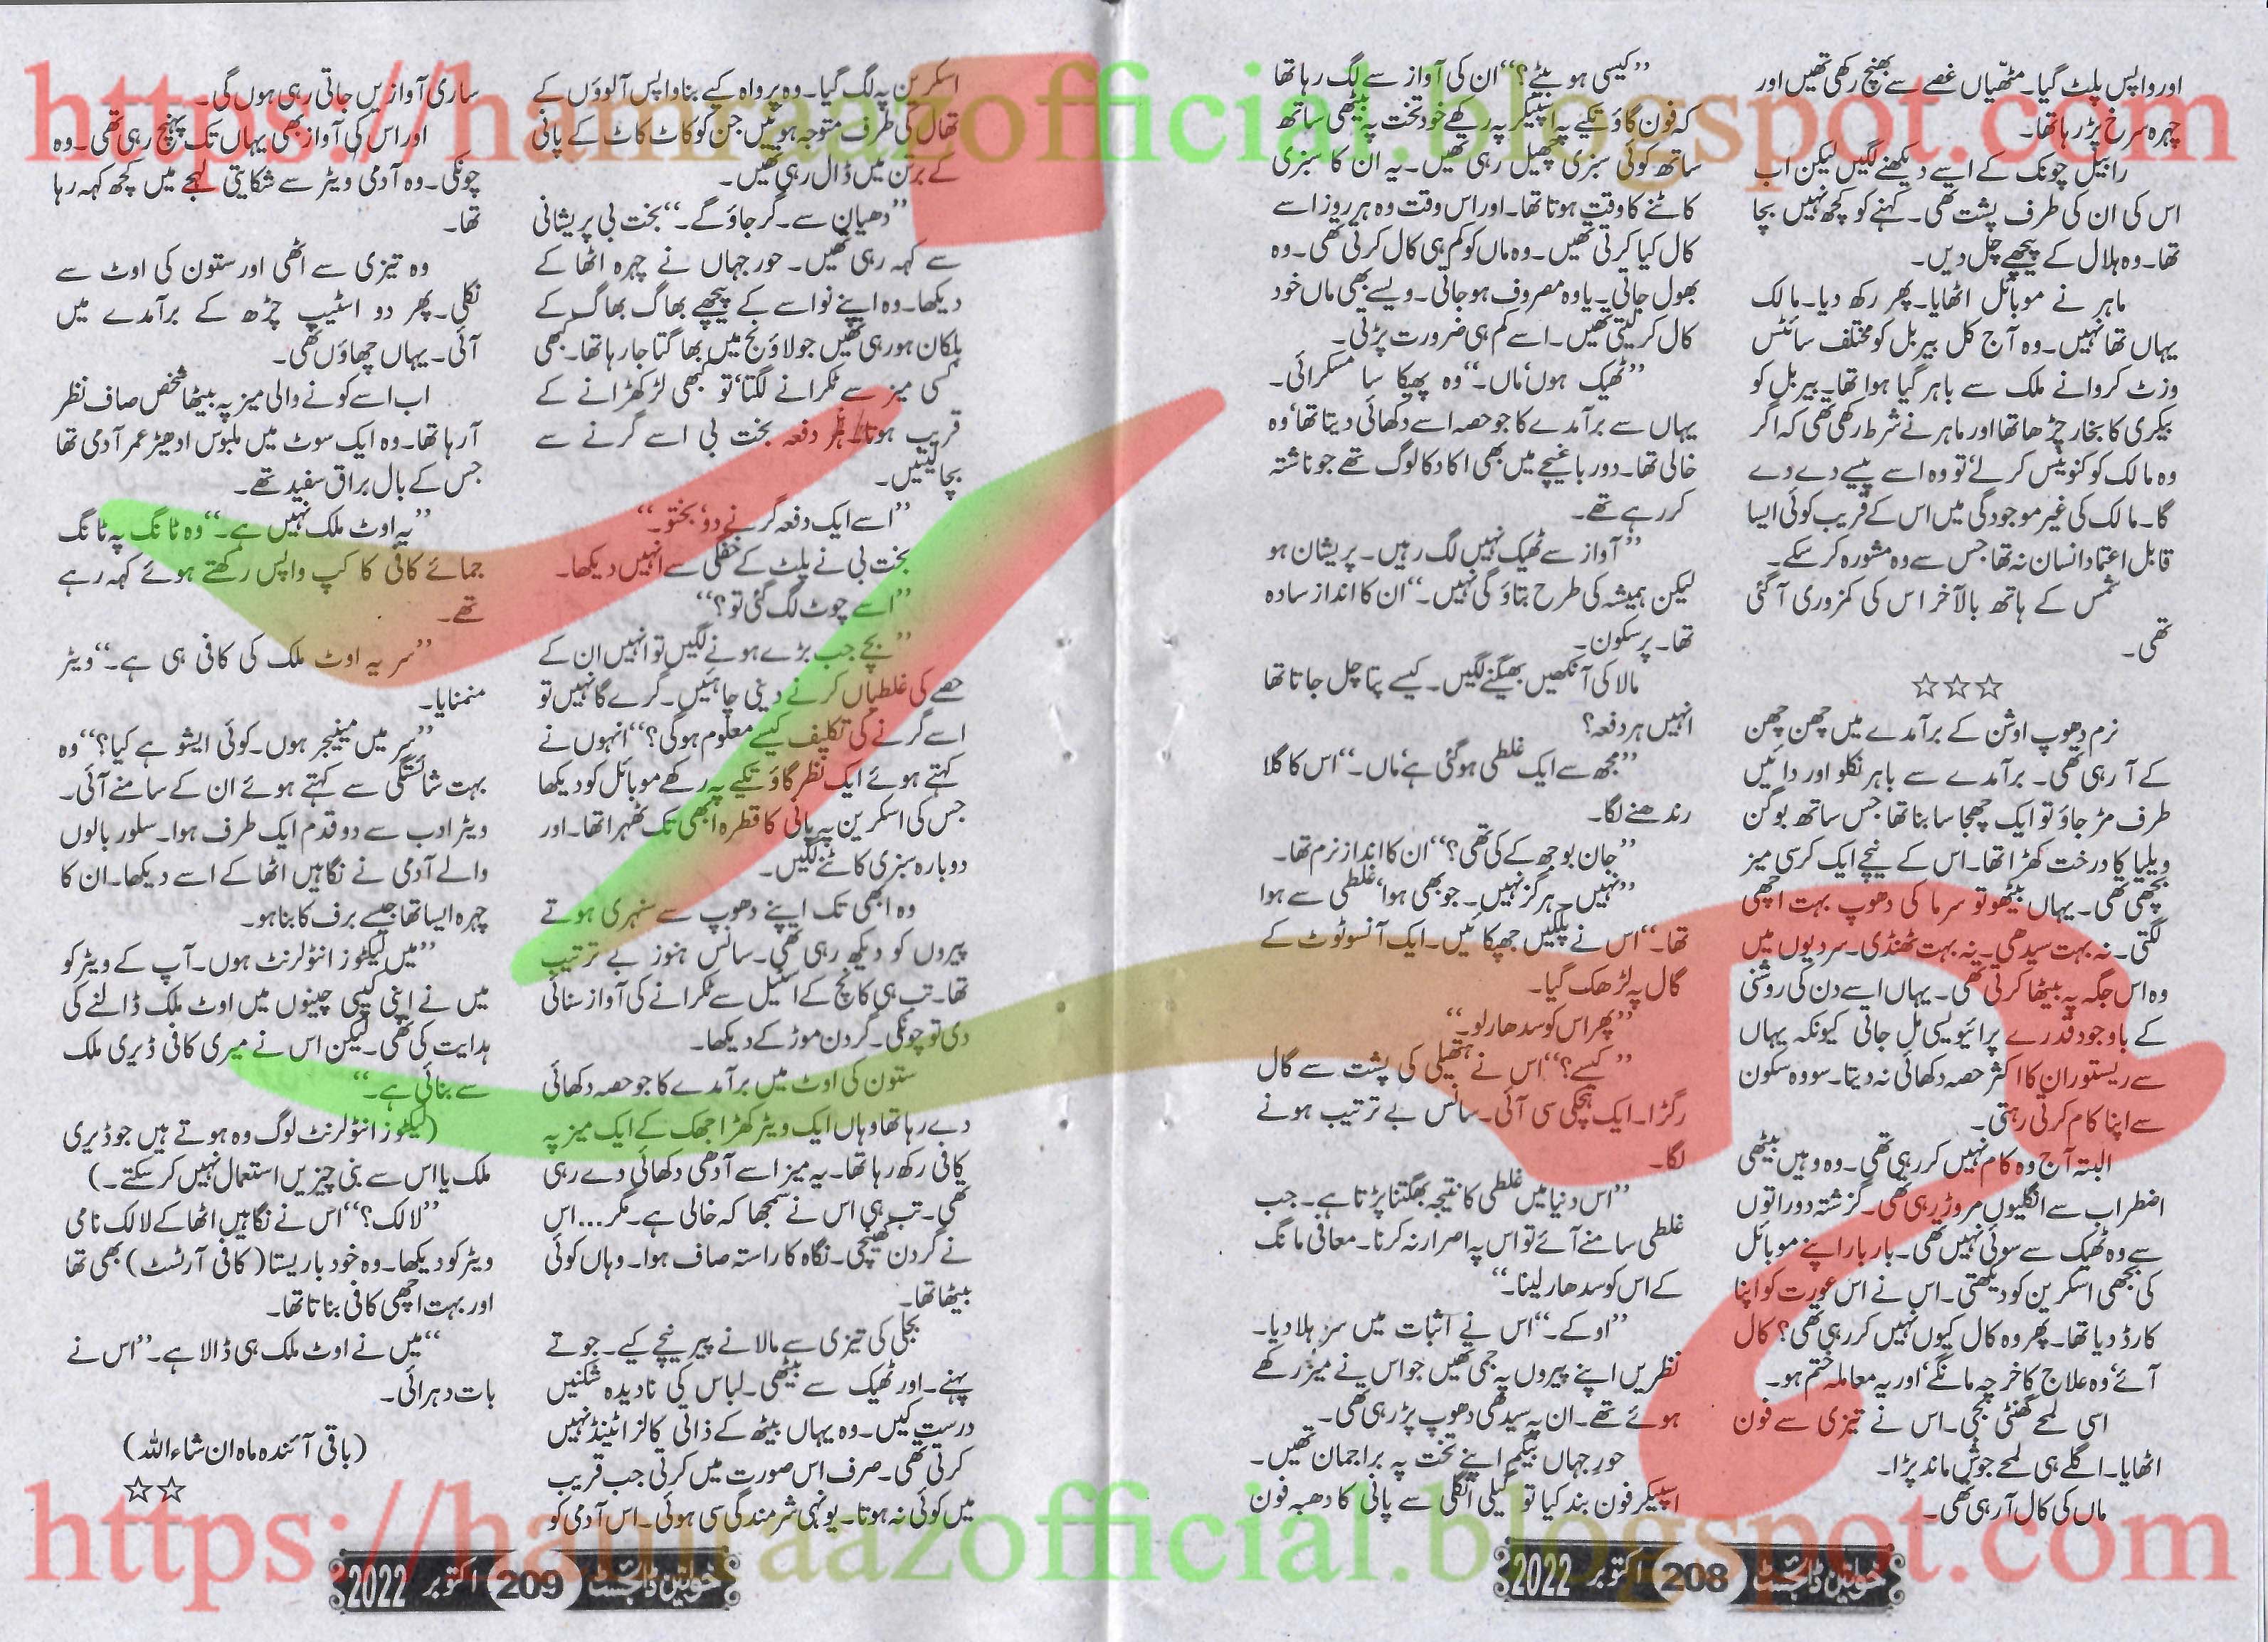 https://hamraazofficial.blogspot.com
اور واپس پلٹ گیا۔ مٹھیاں غصے سے بھینچ رکھی تھیں اور
چہرہ سرخ پڑ رہا تھا۔
رابیل چونک کے اسے دیکھنے لگیں لیکن اب
اس کی ان کی طرف پشت تھی۔ کہنے کو کچھ نہیں بچا
تھا۔ وہ ہلال کے پیچھے چل دیں۔
ماہر نے موبائل اٹھایا۔ پھر رکھ دیا۔ مالک
یہاں تھا نہیں۔ وہ آج کل بیربل کو مختلف سائٹس
وزٹ کروانے ملک سے باہر گیا ہوا تھا۔ بیربل کو
بیکری کا بخار چڑھا تھا اور ماہر نے شرط رکھی تھی کہ اگر
وہ مالک کو کنوینس کر لے، تو وہ اسے پیسے دے دے
گا۔ مالک کی غیر موجودگی میں اس کے قریب کوئی ایسا
قابل اعتماد انسان نہ تھا جس سے وہ مشورہ کر سکے۔
شمس کے ہاتھ بالآخر اس کی کمزوری آ گئی
تھی۔
☆☆☆
نرم دھوپ اوشن کے برآمدے میں چھن چھن
کے آ رہی تھی۔ برآمدے سے باہر نکلو اور دائیں
طرف مڑ جاؤ تو ایک چھجا سا بنا تھا جس ساتھ بوگن
ویلیا کا درخت کھڑا تھا۔ اس کے نیچے ایک کرسی میز
بچھی تھی۔ یہاں بیٹھو تو سرما کی دھوپ بہت اچھی
لگتی۔ نہ بہت سیدھی۔ نہ بہت ٹھنڈی۔ سردیوں میں
وہ اس جگہ پہ بیٹھا کرتی تھی۔ یہاں اسے دن کی روشنی
کے باوجود قدرے پرائیویسی مل جاتی کیونکہ یہاں
سے ریستوران کا اکثر حصہ دکھائی نہ دیتا۔ سو وہ سکون
سے اپنا کام کرتی رہتی۔
البتہ آج وہ کام نہیں کر رہی تھی۔ وہ وہیں بیٹھی
اضطراب سے انگلیوں مروڑ رہی تھی۔ گزشتہ دو راتوں
سے وہ ٹھیک سے سوئی نہیں تھی۔ بار بار اپنے موبائل
کی بجھی اسکرین کو دیکھتی۔ اس نے اس عورت کو اپنا
کارڈ دیا تھا۔ پھر وہ کال کیوں نہیں کر رہی تھی؟ کال
آئے، وہ علاج کا خرچہ مانگے، اور یہ معاملہ ختم ہو۔
اسی لمحے گھنٹی بجی۔ اس نے تیزی سے فون
اٹھایا۔ اگلے ہی لمحے جوش ماند پڑا۔
ماں کی کال آ رہی تھی۔
”کیسی ہو بیٹے؟“ ان کی آواز سے لگ رہا تھا
کہ فون گاؤ تکیے پہ اسپیکر پہ رکھے خود تخت پہ بیٹھی ساتھ
ساتھ کوئی سبزی چھیل رہی تھیں۔ یہ ان کا سبزی
کاٹنے کا وقت ہوتا تھا۔ اور اس وقت وہ ہر روز اسے
کال کیا کرتی تھیں۔ وہ ماں کو کم ہی کال کرتی تھی۔ وہ
بھول جاتی۔ یا وہ مصروف ہو جاتی۔ ویسے بھی ماں خود
کال کر لیتی تھیں۔ اسے کم ہی ضرورت پڑتی۔
”ٹھیک ہوں، ماں۔“ وہ پھیکا سا مسکرائی۔
یہاں سے برآمدے کا جو حصہ اسے دکھائی دیتا تھا، وہ
خالی تھا۔ دور باغیچے میں بھی اکا دکا لوگ تھے جو ناشتہ
کر رہے تھے۔
”آواز سے ٹھیک نہیں لگ رہیں۔ پریشان ہو
لیکن ہمیشہ کی طرح بتاؤ گی نہیں۔“ ان کا انداز سادہ
تھا۔ پر سکون۔
مالا کی آنکھیں بھیگنے لگیں۔ کیسے پتا چل جاتا تھا
انہیں ہر دفعہ؟
”مجھ سے ایک غلطی ہو گئی ہے، ماں۔“ اس کا گلا
رندھنے لگا۔
”جان بوجھ کے کی تھی؟“ ان کا انداز نرم تھا۔
”نہیں۔ ہرگز نہیں۔ جو بھی ہوا، غلطی سے ہوا
تھا۔“ اس نے پلکیں جھپکائیں۔ ایک آنسو ٹوٹ کے
گال پہ لڑھک گیا۔
”پھر اس کو سدھار لو۔“
”کیسے؟“ اس نے ہتھیلی کی پشت سے گال
رگڑا۔ ایک ہچکی سی آئی۔ سانس بے ترتیب ہونے
لگا۔
”اس دنیا میں غلطی کا نتیجہ بھگتنا پڑتا ہے۔ جب
غلطی سامنے آئے تو اس پہ اصرار نہ کرنا۔ معافی مانگ
کے اس کو سدھار لینا۔“
”اوکے۔“ اس نے اثبات میں سر ہلا دیا۔
نظریں اپنے پیروں پہ جمی تھیں جو اس نے میز رکھے
ہوئے تھے۔ ان پہ سیدھی دھوپ پڑ رہی تھی۔
حور جہاں بیگم اپنے تخت پہ براجمان تھیں۔
اسپیکر فون بند کیا تو گیلی انگلی سے پانی کا دھبہ فون
خواتین ڈائجسٹ 208 اکتوبر 2022
اسکرین پہ لگ گیا۔ وہ پرواہ کیے بنا واپس آلوؤں کے
تھال کی طرف متوجہ ہوئیں جن کو کاٹ کاٹ کے پانی
کے برتن میں ڈال رہی تھیں۔
”دھیان سے۔ گر جاؤ گے۔“ بخت بی پریشانی
سے کہہ رہی تھیں۔ حور جہاں نے چہرہ اٹھا کے
دیکھا۔ وہ اپنے نواسے کے پیچھے بھاگ بھاگ کے
ہلکان ہو رہی تھیں جو لاؤنج میں بھاگتا جا رہا تھا۔ کبھی
کسی میز سے ٹکرانے لگتا، تو کبھی لڑکھڑانے کے
قریب ہوتا۔ ہر دفعہ بخت بی اسے گرنے سے
بچا لیتیں۔
”اسے ایک دفعہ گرنے دو، بختو۔“
بخت بی نے پلٹ کے خفگی سے انہیں دیکھا۔
”اسے چوٹ لگ گئی تو؟“
”بچے جب بڑے ہونے لگیں تو انہیں ان کے
حصے کی غلطیاں کرنے دینی چاہئیں۔ گرے گا نہیں تو
اسے گرنے کی تکلیف کیسے معلوم ہو گی؟“ انہوں نے
کہتے ہوئے ایک نظر گاؤ تکیے پہ رکھے موبائل کو دیکھا
جس کی اسکرین پہ پانی کا قطرہ ابھی تک ٹھہرا تھا۔ اور
دوبارہ سبزی کاٹنے لگیں۔
وہ ابھی تک اپنے دھوپ سے سنہری ہوتے
پیروں کو دیکھ رہی تھی۔ سانس ہنوز بے ترتیب
تھا۔ تب ہی کانچ کے اسٹیل سے ٹکرانے کی آواز سنائی
دی تو چونکی۔ گردن موڑ کے دیکھا۔
ستون کی اوٹ میں برآمدے کا جو حصہ دکھائی
دے رہا تھا وہاں ایک ویٹر کھڑا جھک کے ایک میز پہ
کافی رکھ رہا تھا۔ یہ میز اسے آدھی دکھائی دے رہی
تھی۔ تب ہی اس نے سمجھا کہ خالی ہے۔ مگر... اس
نے گردن کھینچی۔ نگاہ کا راستہ صاف ہوا۔ وہاں کوئی
بیٹھا تھا۔
بجلی کی تیزی سے مالا نے پیر نیچے کیے۔ جوتے
پہنے۔ اور ٹھیک سے بیٹھی۔ لباس کی نادیدہ شکنیں
درست کیں۔ وہ یہاں بیٹھ کے ذاتی کالز اٹینڈ نہیں
کرتی تھی۔ صرف اس صورت میں کرتی جب قریب
میں کوئی نہ ہوتا۔ یونہی شرمندگی سی ہوئی۔ اس آدمی کو
ساری آوازیں جاتی رہی ہوں گی۔
اور اس کی آواز بھی یہاں تک پہنچ رہی تھی۔ وہ
چونکی۔ وہ آدمی ویٹر سے شکایتی لہجے میں کچھ کہہ رہا
تھا۔
وہ تیزی سے اٹھی اور ستون کی اوٹ سے
نکلی۔ پھر دو اسٹیپ چڑھ کے برآمدے میں
آئی۔ یہاں چھاؤں تھی۔
اب اسے کونے والی میز پہ بیٹھا شخص صاف نظر
آ رہا تھا۔ وہ ایک سوٹ میں ملبوس ادھیڑ عمر آدمی تھا
جس کے بال براق سفید تھے۔
”یہ اوٹ ملک نہیں ہے۔“ وہ ٹانگ پہ ٹانگ
جمائے کافی کا کپ واپس رکھتے ہوئے کہہ رہے
تھے۔
”سر یہ اوٹ ملک کی کافی ہی ہے۔“ ویٹر
منمنایا۔
”سر میں مینیجر ہوں۔ کوئی ایشو ہے کیا؟“ وہ
بہت شائستگی سے کہتے ہوئے ان کے سامنے آئی۔
ویٹر ادب سے دو قدم ایک طرف ہوا۔ سلور بالوں
والے آدمی نے نگاہیں اٹھا کے اسے دیکھا۔ ان کا
چہرہ ایسا تھا جیسے برف کا بنا ہو۔
”میں لیکٹوز انٹولرنٹ ہوں۔ آپ کے ویٹر کو
میں نے اپنی کیپی چینوں میں اوٹ ملک ڈالنے کی
ہدایت کی تھی۔ لیکن اس نے میری کافی ڈیری ملک
سے بنائی ہے۔“
(لیکٹوز انٹولرنٹ لوگ وہ ہوتے ہیں جو ڈیری
ملک یا اس سے بنی چیزیں استعمال نہیں کر سکتے۔)
”لالک؟“ اس نے نگاہیں اٹھا کے لالک نامی
ویٹر کو دیکھا۔ وہ خود باریستا (کافی آرٹسٹ) بھی تھا
اور بہت اچھی کافی بناتا تھا۔
”میں نے اوٹ ملک ہی ڈالا ہے۔“ اس نے
بات دہرائی۔
(باقی آئندہ ماہ ان شاء اللہ)
☆☆
خواتین ڈائجسٹ 209 اکتوبر 2022
https://hamraazofficial.blogspot.com